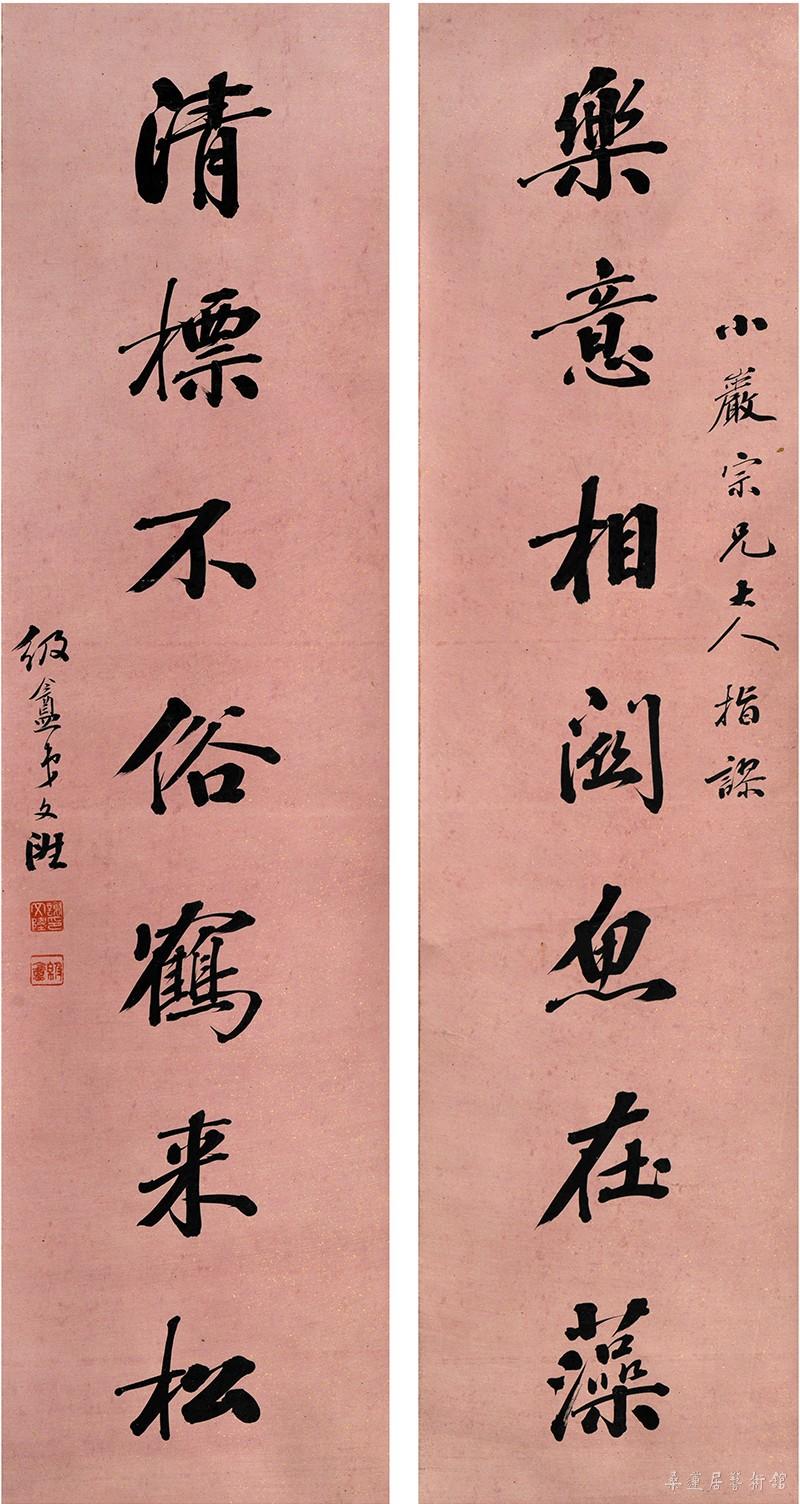 樂意相關魚在藻
小巖宗兄大人指謬
清標不俗鶴來松
級盦弟文陞
桑蓮居藝術館